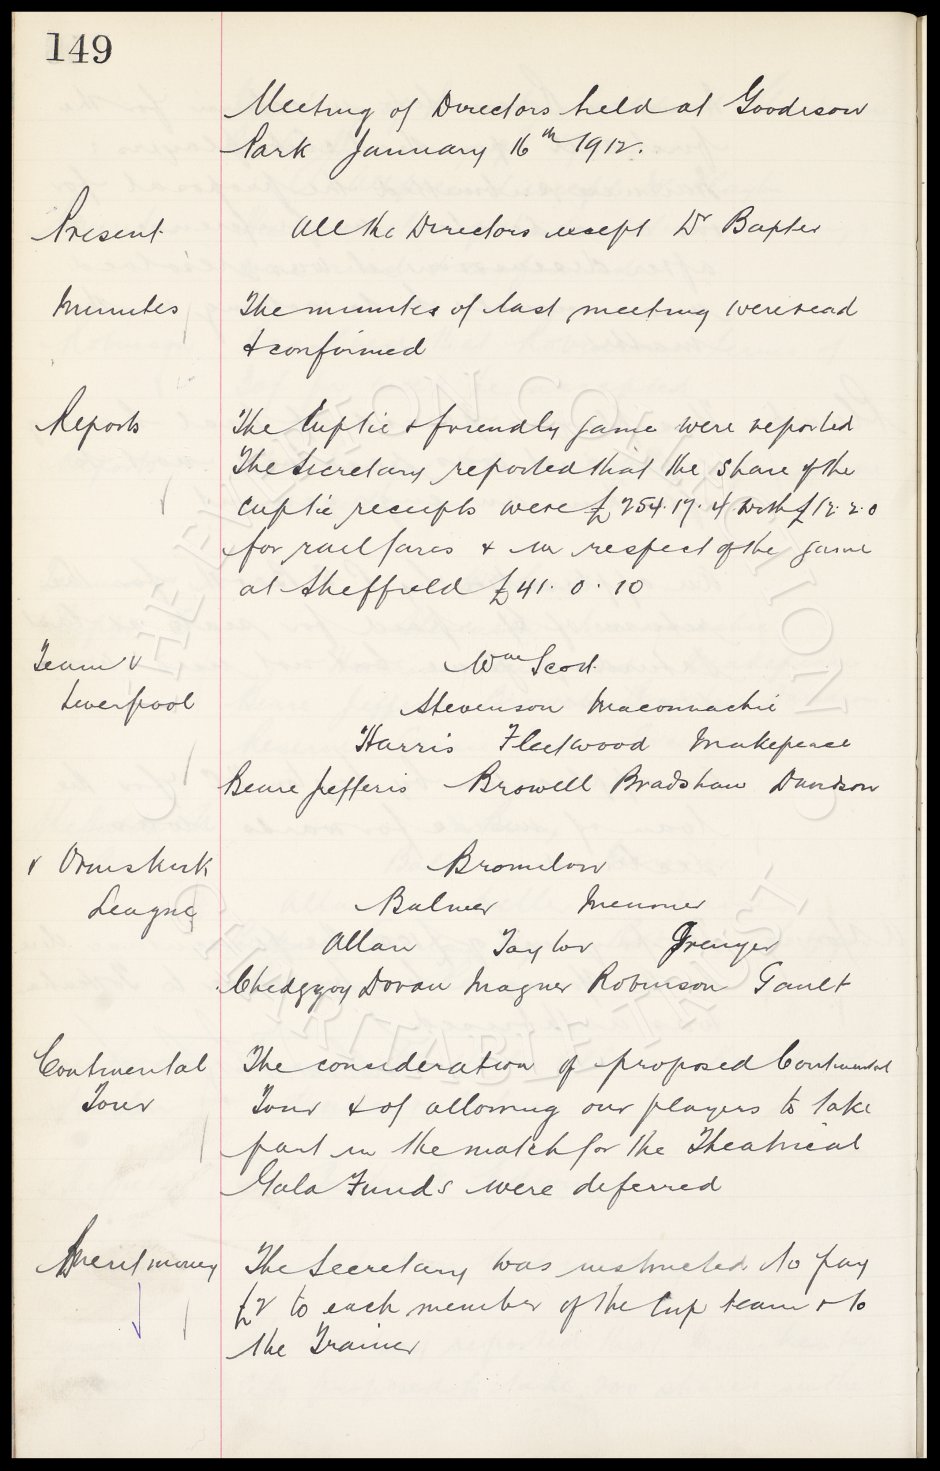 149
Meeting of Directors held at Goodison
Park January 16th 1912.
Present All the Directors except Dr Baxter
Minutes The minutes of last meeting were read
& confirmed
Reports The Cuptie & friendly game were reported
The Secretary reported that the share of the
cuptie receipts were £254.17.4 with £12.2.0
for rail fares & in respect of the game
at Sheffield £41.0.10
Team v Wm Scott
Liverpool Stevenson Maconnachie
Harris Fleetwood Makepeace
Beare Jefferis Browell Bradshaw Davidson
v Ormskirk Bromilow
League Balmer Meunier
Allan Taylor Grenyer
Chedgzoy Doran Magner Robinson Gault
Continental The consideration of proposed Continental
Tour Tour & of allowing our players to take
part in the match for the Theatrical
Gala Funds were deferred
Merit money The Secretary was instructed to pay
£2 to each member of the Cup team & to
the Trainer